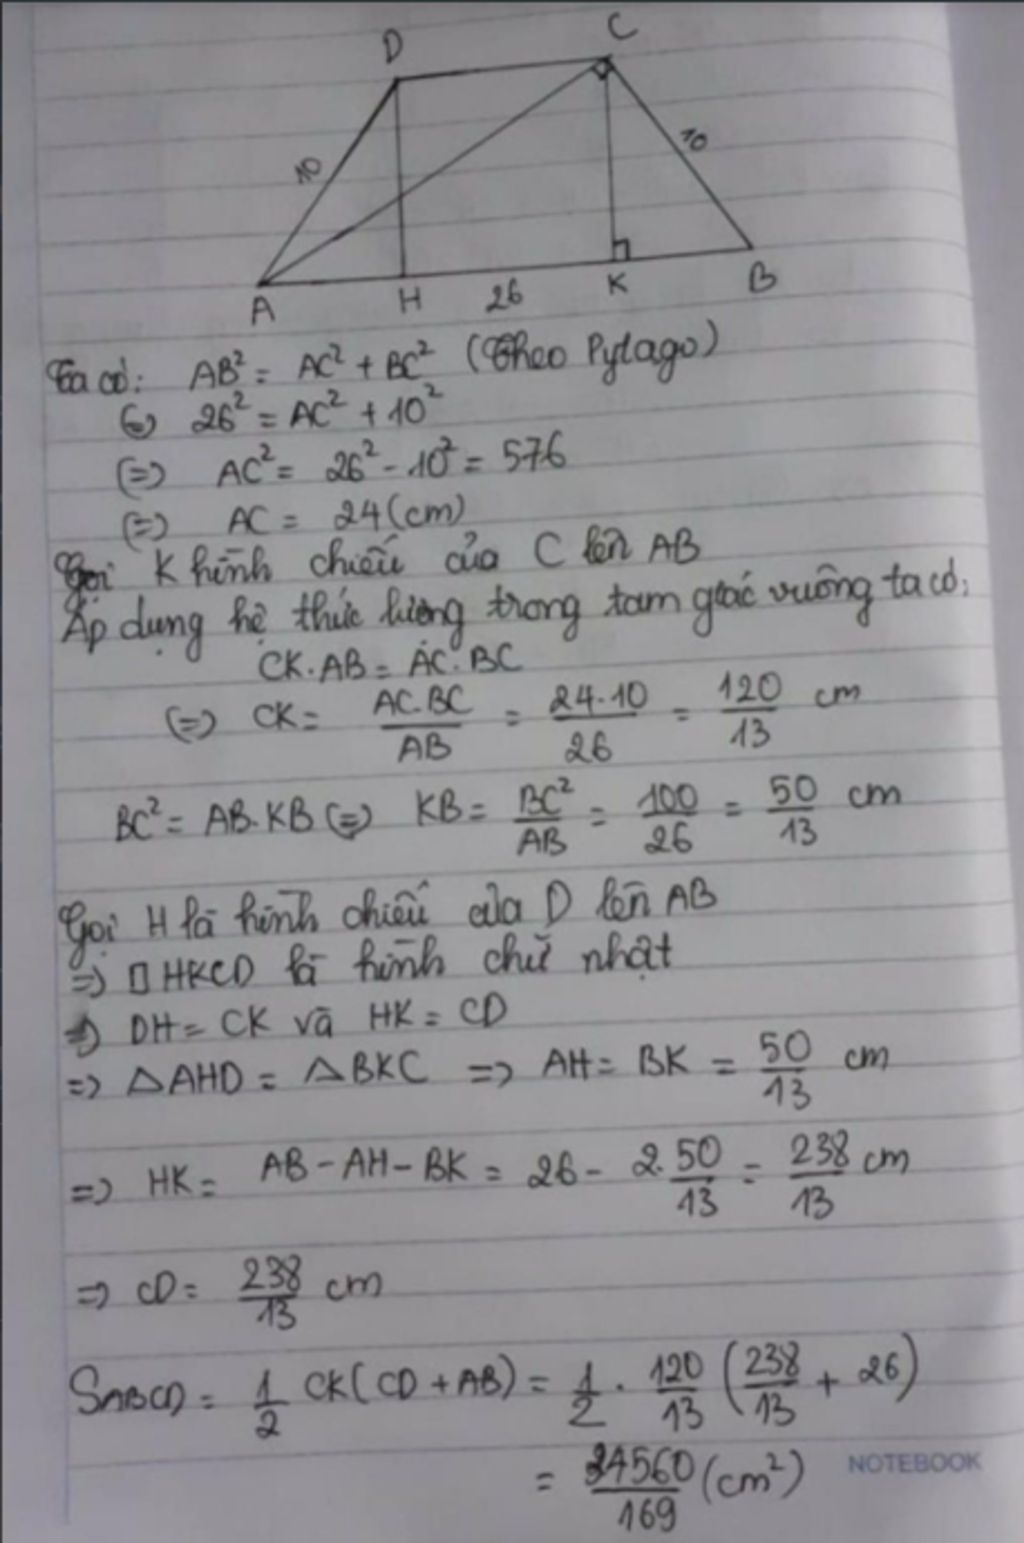 D C
10 10
A H 26 K B
Ta có: AB² = AC² + BC² (Theo Pytago)
(=) 26² = AC² + 10²
(=) AC² = 26² - 10² = 576
(=) AC = 24 (cm)
Gọi K hình chiếu của C lên AB
Áp dụng hệ thức lượng trong tam giác vuông ta có:
CK.AB = AC.BC
(=) CK = AC.BC/AB = 24.10/26 = 120/13 cm
BC² = AB.KB (=) KB = BC²/AB = 100/26 = 50/13 cm
Gọi H là hình chiếu của D lên AB
=> □HKCD là hình chữ nhật
=> DH = CK và HK = CD
=> △AHD = △BKC => AH = BK = 50/13 cm
=> HK = AB - AH - BK = 26 - 2.50/13 = 238/13 cm
=> CD = 238/13 cm
SABCD = 1/2 CK(CD + AB) = 1/2 . 120/13 (238/13 + 26)
= 34560/169 (cm²)
NOTEBOOK